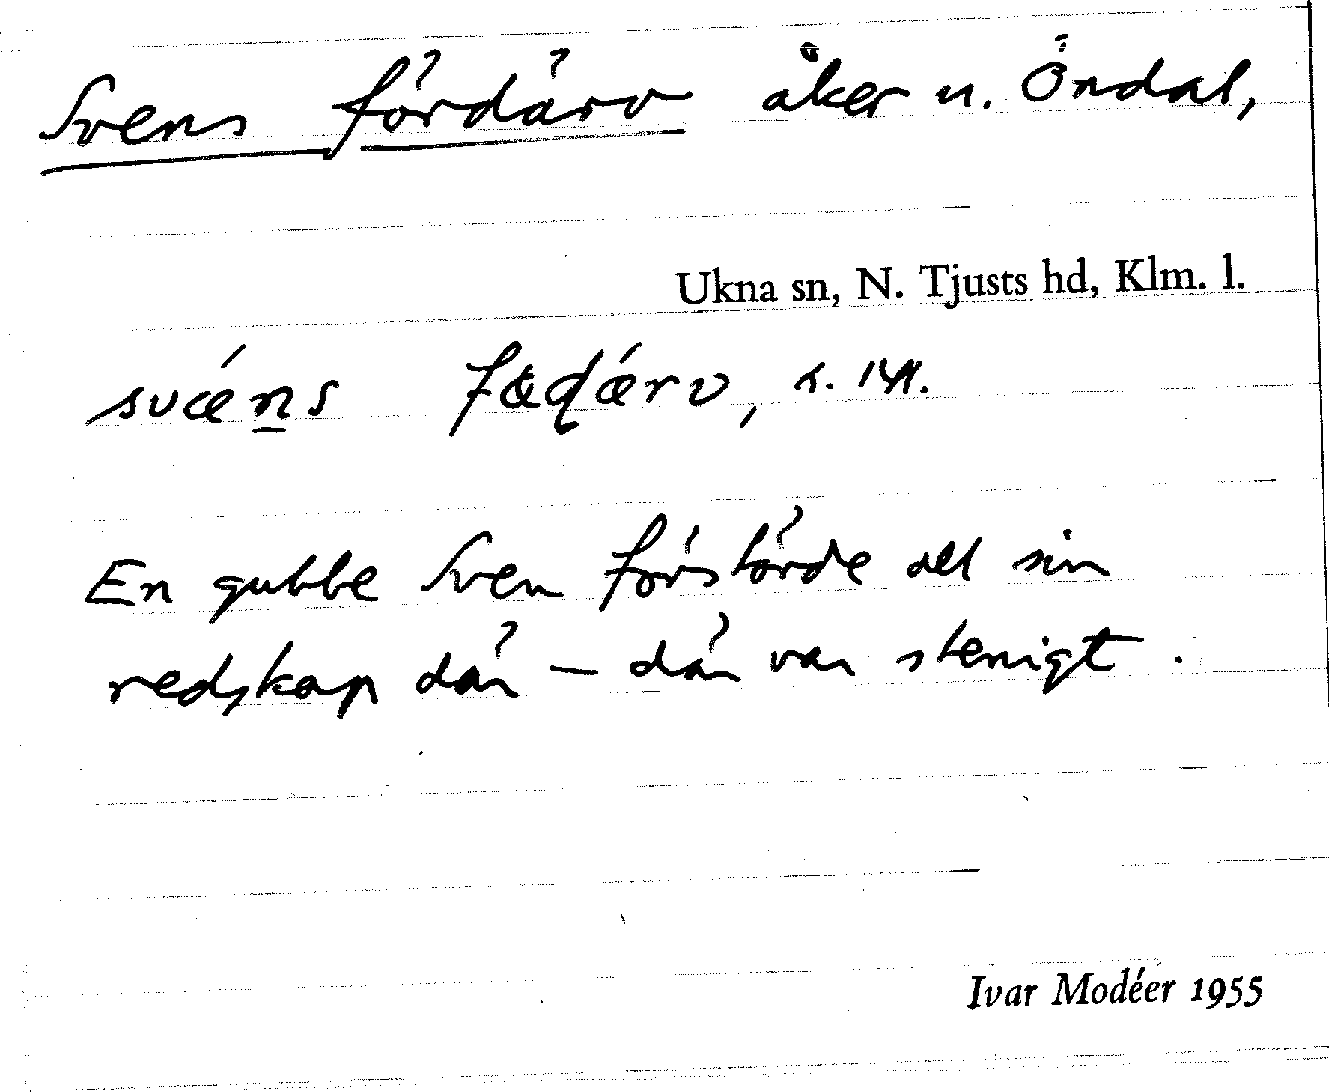 Svens fördärv åker u. Öndal,
Ukna sn, N. Tjusts hd, Klm. l.
svǽn̲s fædǽrv,
En gubbe Sven förstörde all sin
redskap där – där var stenigt.
Ivar Modéer 1955